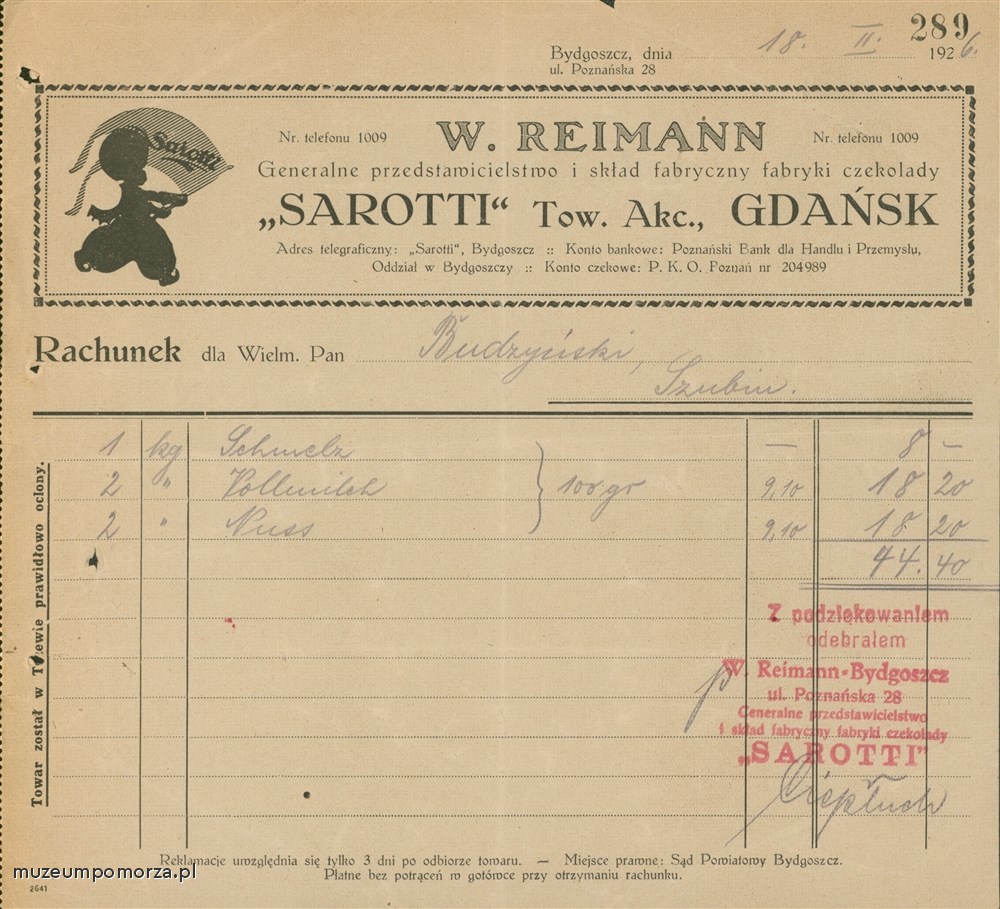 289
Bydgoszcz, dnia 18. II. 1926.
ul. Poznańska 28
Sarotti
Nr. telefonu 1009 W. REIMANN Nr. telefonu 1009
Generalne przedstawicielstwo i skład fabryczny fabryki czekolady
„SAROTTI“ Tow. Akc., GDAŃSK
Adres telegraficzny: „Sarotti“, Bydgoszcz :: Konto bankowe: Poznański Bank dla Handlu i Przemysłu,
Oddział w Bydgoszczy :: Konto czekowe: P. K. O. Poznań nr 204989
Rachunek dla Wielm. Pan Budzyński,
Szubin.
1 kg Schmelz — 8 —
2 " Vollmilch } 100 gr 9,10 18 20
2 " Nuss 9,10 18 20
44.40
Towar został w Tczewie prawidłowo oclony.
Z podziękowaniem
odebrałem
W. Reimann-Bydgoszcz
ul. Poznańska 28
Generalne przedstawicielstwo
i skład fabryczny fabryki czekolady
„SAROTTI”
Reklamacje uwzględnia się tylko 3 dni po odbiorze towaru. — Miejsce prawne: Sąd Powiatowy Bydgoszcz.
Płatne bez potrąceń w gotówce przy otrzymaniu rachunku.
muzeumpomorza.pl
2641